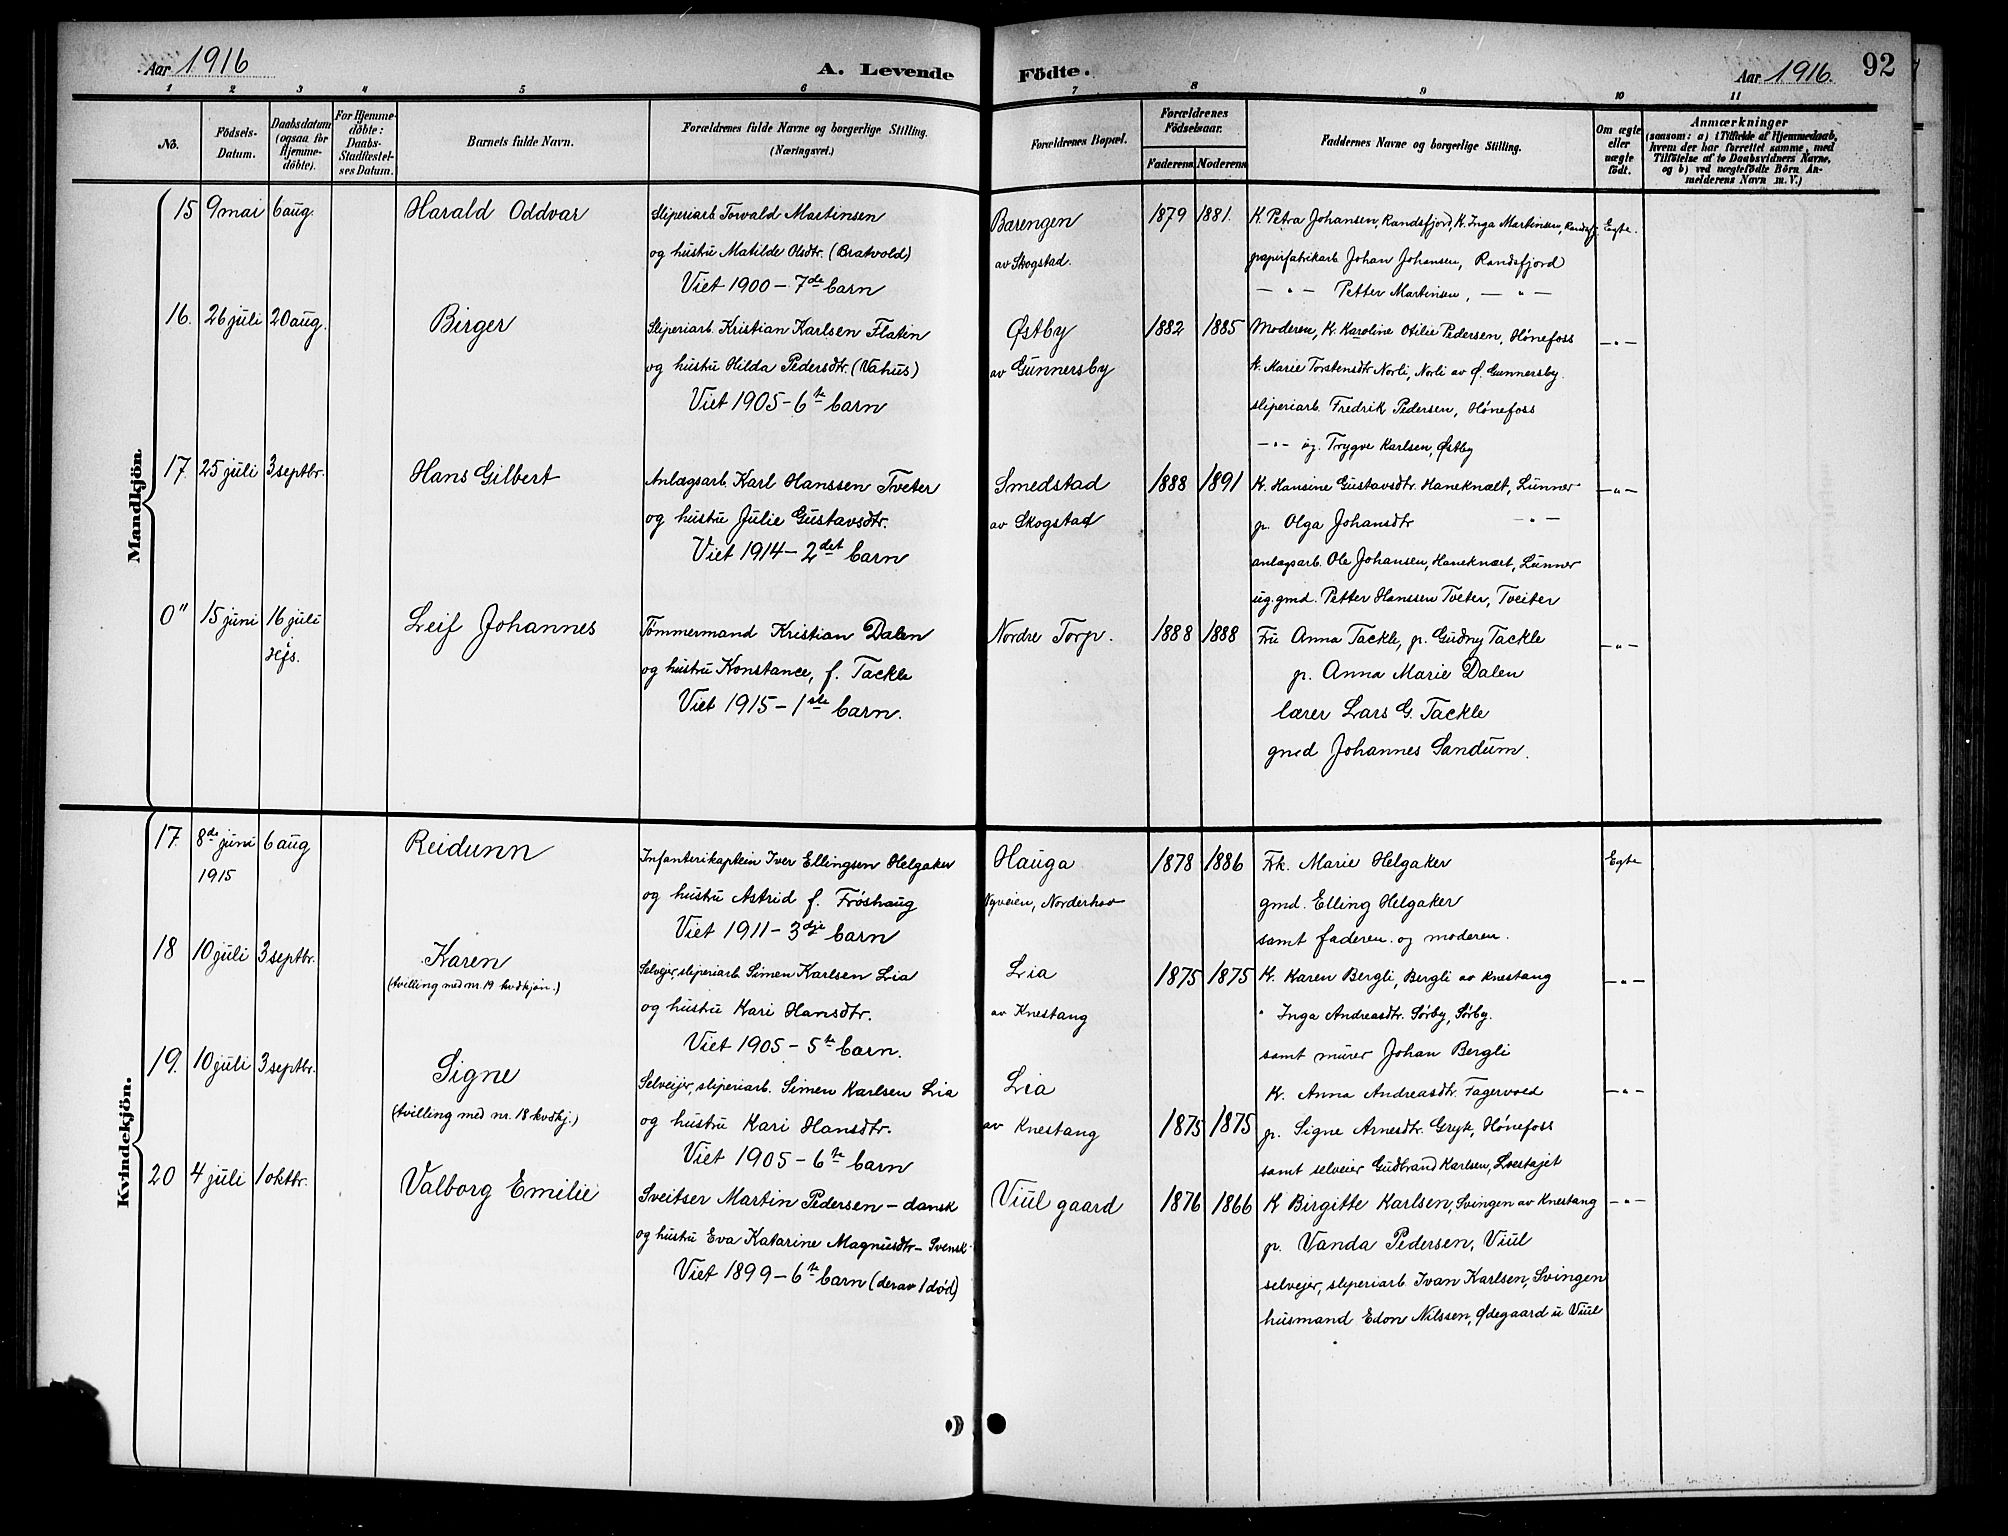 Aar 1916
A. Levende
Födte.
Aar 1916.
92
1 2 3 4 5 6 7 8 9 10 11
No.
Födsels-
Datum.
Daabsdatum
(ogsaa for
Hjemme-
döbte).
For Hjemme-
döbte:
Daabs-
Stadfæstel-
ses Datum.
Barnets fulde Navn.
Forældrenes fulde Navne og borgerlige Stilling.
(Næringsvei.)
Forældrenes Bopæl.
Forældrenes
Födselsaar.
Faderens Moderens
Faddernes Navne og borgerlige Stilling.
Om ægte
eller
uægte
født.
Anmærkninger
(saasom: a) i Tilfælde af Hjemmedaab,
hvem der har forrettet samme, med
Tilföielse af to Daabsvidners Navne,
og b) ved uægtefödte Börn An-
melderens Navn m. V.)
Mandkjön.
15 9 mai 6 aug. Harald Oddvar
Sliperiarb. Torvald Martinsen
og hustru Matilde Olsdtr. (Bratvold)
Viet 1900 – 7de barn
Barengen
av Skogstad.
1879 1881.
K. Petra Johansen, Randsfjord, K. Inga Martinsen, Randsfj.
papirfabrikarb. Johan Johansen, Randsfjord
— " — Petter Martinsen, — " —
Egte.
16. 26 juli 20 aug. Birger
Sliperiarb. Kristian Karlsen Flatin
og hustru Hilda Pedersdtr. (Vahus)
Viet 1905 – 6te barn
Østby
av Gunnersby
1882 1885
Moderen, K. Karoline Otilie Pedersen, Hønefoss
K. Marie Torstensdtr Norli, Norli av Ø. Gunnersby.
sliperiarb. Fredrik Pedersen, Hønefoss
— " — ug. Trygve Karlsen, Østby
— " —
17. 25 juli 3 septbr. Hans Gilbert
Anlægsarb. Karl Hanssen Tveter
og hustru Julie Gustavsdtr.
Viet 1914 – 2det barn
Smedstad
av Skogstad
1888 1891
K. Hansine Gustavsdtr. Haneknæt, Lunner
p. Olga Johansdtr — " —
anlægsarb. Ole Johansen, Haneknæt, Lunner
ug. gmd. Petter Hanssen Tveter, Tveiter
— " —
0" 15 juni 16 juli Leif Johannes
Hfs.
Tømmermand Kristian Dalen
og hustru Konstance, f. Tackle
Viet 1915 – 1ste barn.
Nordre Torp.
1888 1888
Fru Anna Tackle, p. Gudny Tackle
p. Anna Marie Dalen
lærer Lars G. Tackle
gmd Johannes Sandum.
— " —
Kvindekjön.
17. 8de juni 6 aug Reidunn
1915
Infanterikaptein Iver Ellingsen Helgaker
og hustru Astrid f. Frøshaug
Viet 1911 – 3dje barn
Hauga
Ugveien, Norderhov
1878 1886
Frk. Marie Helgaker
gmd. Elling Helgaker
samt faderen og moderen.
Egte
18 10 juli 3 septbr. Karen
(tvilling med nr. 19 kvdkjøn.)
Selveier, sliperiarb. Simen Karlsen Lia
og hustru Kari Hansdtr.
Viet 1905 – 5te barn.
Lia
av Knestang
1875 1875
K. Karen Bergli, Bergli av Knestang
" Inga Andreasdtr. Sørby, Sørby.
samt murer Johan Bergli
— " —
19. 10 juli 3 septbr. Signe
(tvilling med nr. 18 kvdkj.)
Selveier, sliperiarb. Simen Karlsen Lia
og hustru Kari Hansdtr.
Viet 1905 – 6te barn
Lia
av Knestang
1875 1875
K. Anna Andreasdtr. Fagervold
p. Signe Arnesdtr. Gryte, Hønefoss
samt selveier Gudbrand Karlsen,
— " —
20 4 juli 1 oktbr. Valborg Emilie
Sveitser Martin Pedersen – dansk
og hustru Eva Katarine Magnusdtr – Svensk
Viet 1899 – 6te barn (derav 1 død)
Viul gaard
1876 1866
K Birgitte Karlsen, Svingen av Knestang
p. Vanda Pedersen, Viul
selveier, sliperiarb Ivan Karlsen, Svingen
husmand Edon Nilssen, Ødegaard u Viul
— " —